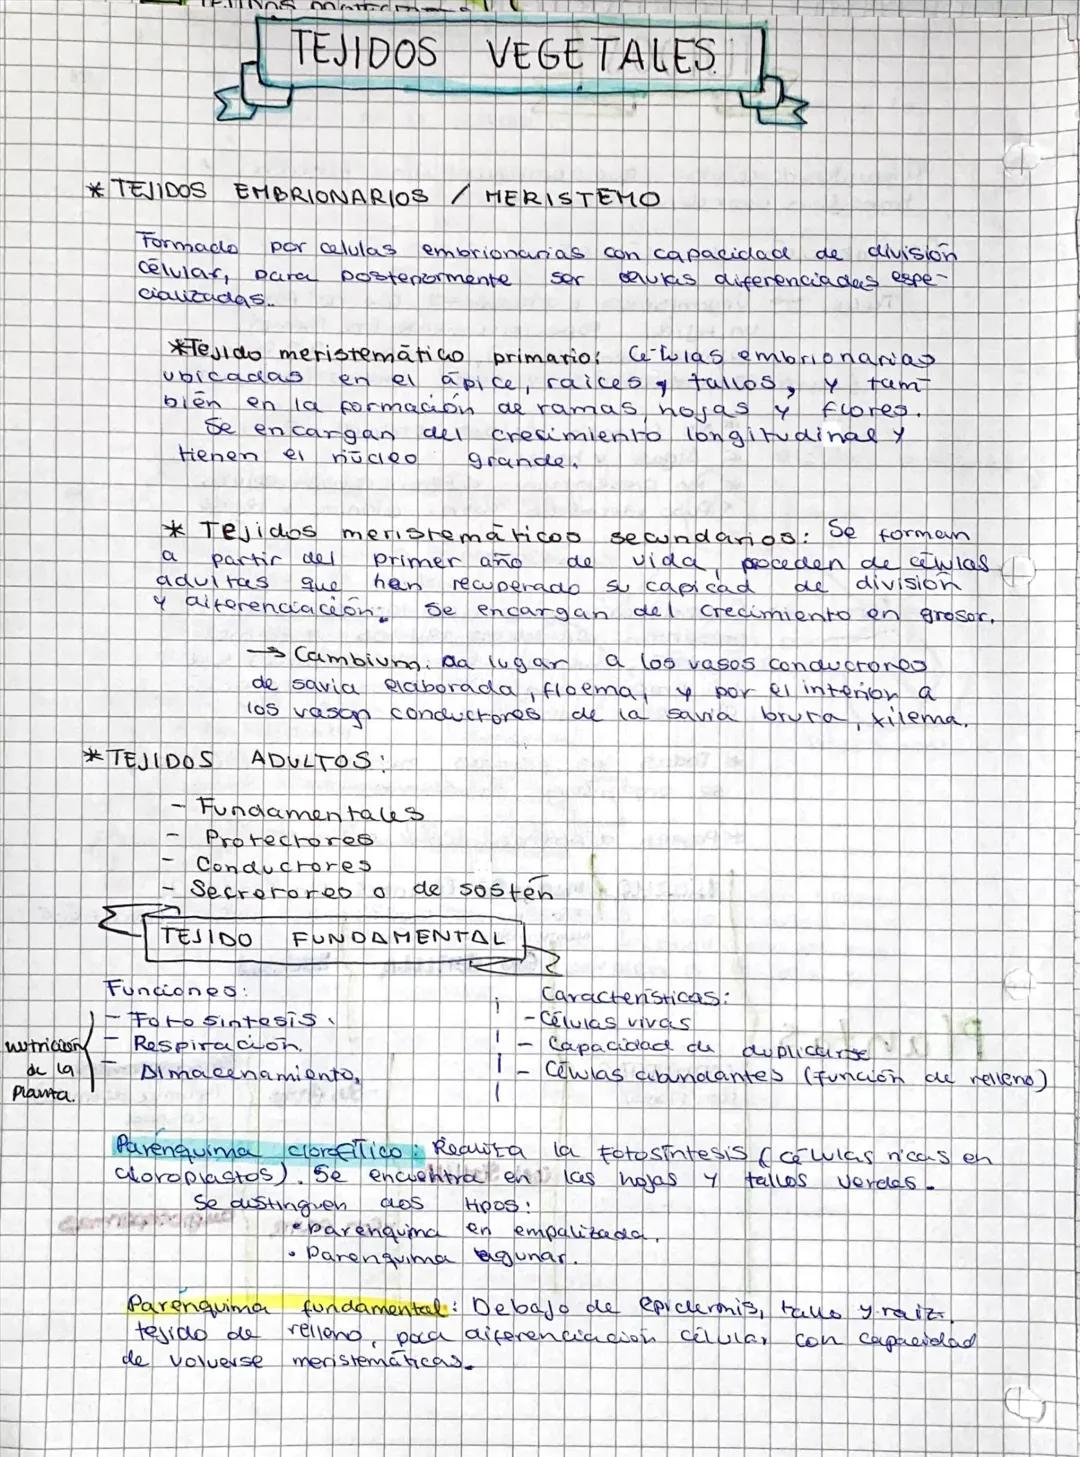 TEJIDOS VEGETALES
* TEJIDOS EMBRIONARIOS / MERISTEMO
Formado por celulas embrionarias con capacidad de división
célular, para posteriormente ser células diferenciadas espe-
cializadas..
*Tejido meristemático primario: Células embrionarias
ubicadas en el ápice, raices y tallos, y tam-
bién en la formación de ramas, hojas y flores.
Se encargan del crecimiento longitudinal y
tienen el núcleo grande.
* Tejidos meristemáticos secundarios: Se forman
a partir del primer año de vida, proceden de células
adultas que han recuperado su capicad de división
y diferenciación. Se encargan del crecimiento en grosor.
→ Cambium. Da lugar a los vasos conductores
de savia elaborada, floema, y por el interior a
los vasos conductores de la savia bruta, xilema.
* TEJIDOS ADULTOS:
- Fundamentales
- Protectores
- Conductores
- Secretores o de sostén
TEJIDO FUNDAMENTAL
Funciones:
- Fotosintesis.
- Respiración.
- Almacenamiento.
nutrición
de la
planta.
Características:
- Células vivas
- Capacidad de duplicarse
- Células abundantes (función de relleno)
Parénquima clorofílico: Realiza la fotosíntesis (células ricas en
cloroplastos). Se encuentra en las hojas y tallos verdes.
Se distinguen dos tipos:
• parenquima en empalizada.
• Parenquima lagunar.
Parénquima fundamental: Debajo de epidermis, tallo y raiz.
tejido de relleno, poca diferenciación célular con capacidad
de volverse meristemáticas.